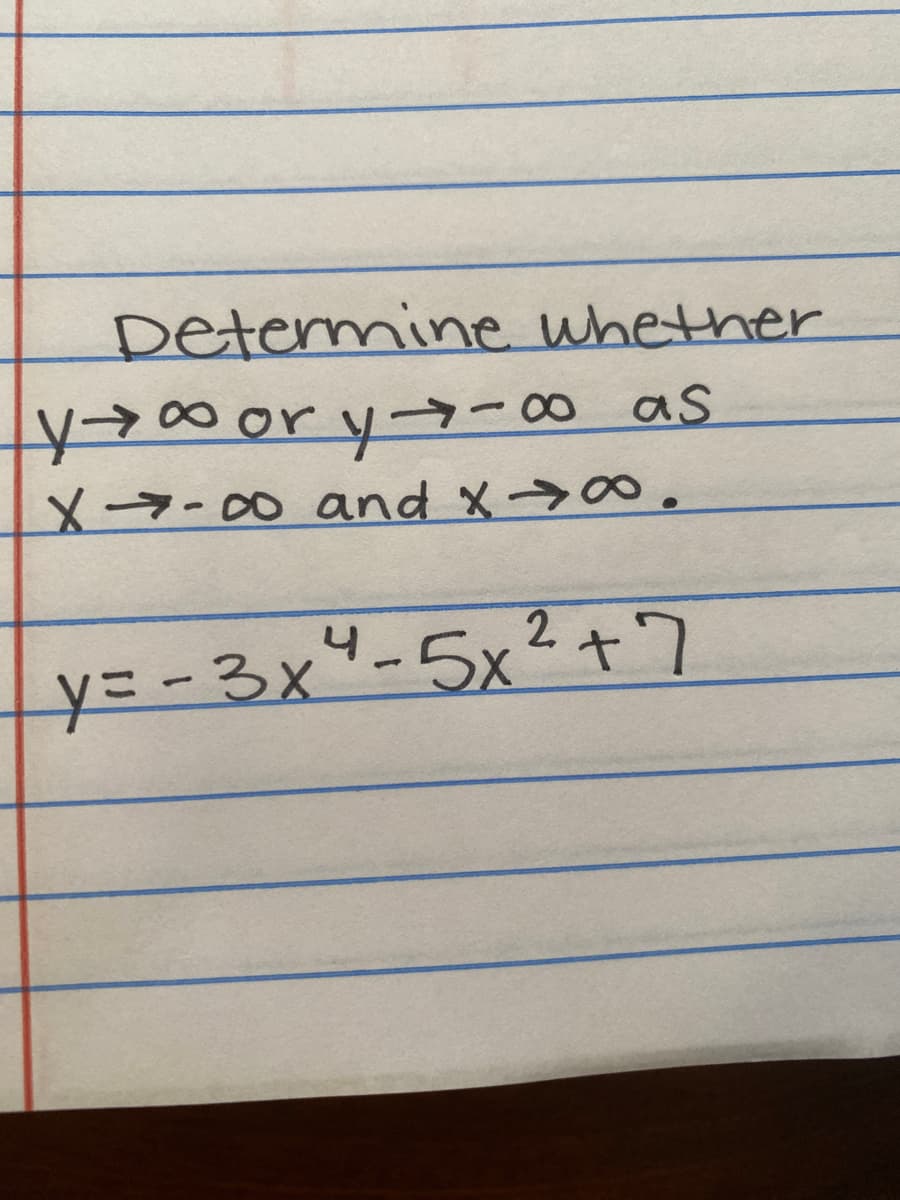 Determine whether
y→∞ or y→-∞ as
x→-∞ and x→∞.
y=-3x⁴-5x²+7